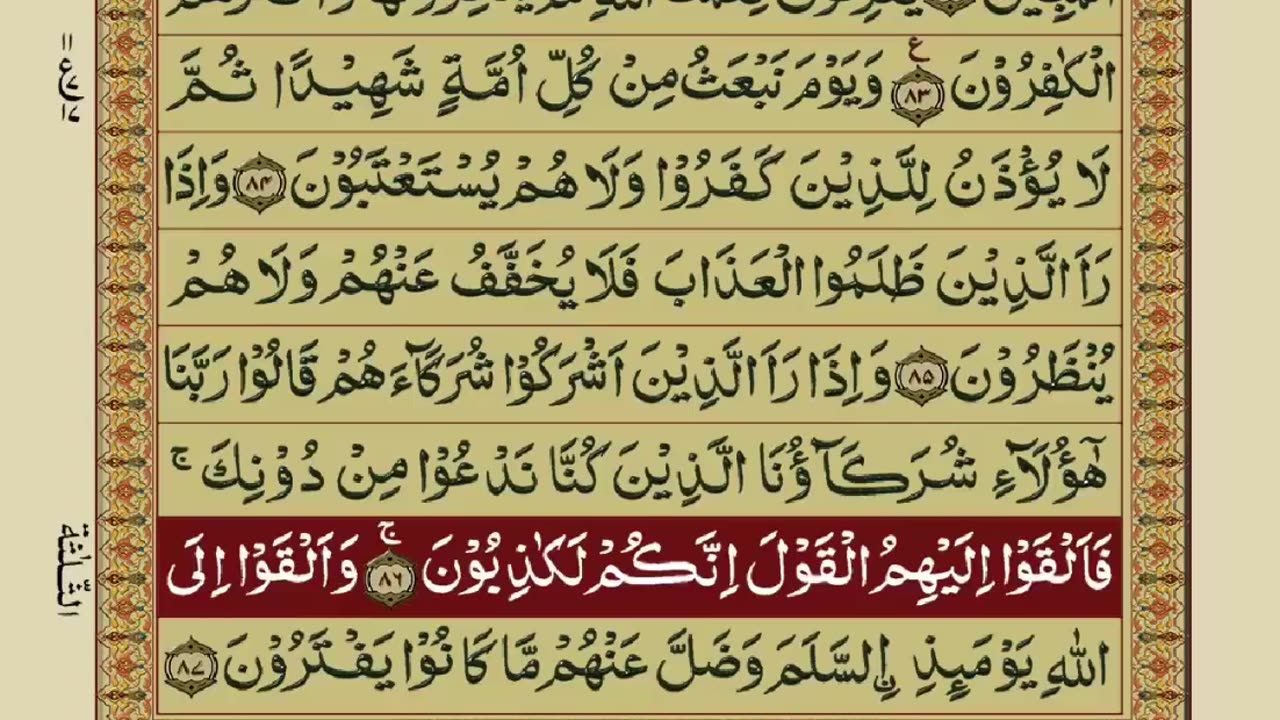 الْكٰفِرُوْنَ ﴿۸۳﴾ ع وَيَوْمَ نَبْعَثُ مِنْ كُلِّ اُمَّةٍ شَهِيْدًا ثُمَّ
لَا يُؤْذَنُ لِلَّذِيْنَ كَفَرُوْا وَلَا هُمْ يُسْتَعْتَبُوْنَ ﴿۸۴﴾ وَاِذَا
رَاَ الَّذِيْنَ ظَلَمُوا الْعَذَابَ فَلَا يُخَفَّفُ عَنْهُمْ وَلَا هُمْ
يُنْظَرُوْنَ ﴿۸۵﴾ وَاِذَا رَاَ الَّذِيْنَ اَشْرَكُوْا شُرَكَآءَهُمْ قَالُوْا رَبَّنَا
هٰٓؤُلَآءِ شُرَكَآؤُنَا الَّذِيْنَ كُنَّا نَدْعُوْا مِنْ دُوْنِكَ ۚ
فَاَلْقَوْا اِلَيْهِمُ الْقَوْلَ اِنَّكُمْ لَكٰذِبُوْنَ ۚ ﴿۸۶﴾ وَاَلْقَوْا اِلَى
اللّٰهِ يَوْمَىِٕذِ ࣙالسَّلَمَ وَضَلَّ عَنْهُمْ مَّا كَانُوْا يَفْتَرُوْنَ ﴿۸۷﴾
الثلٰثة